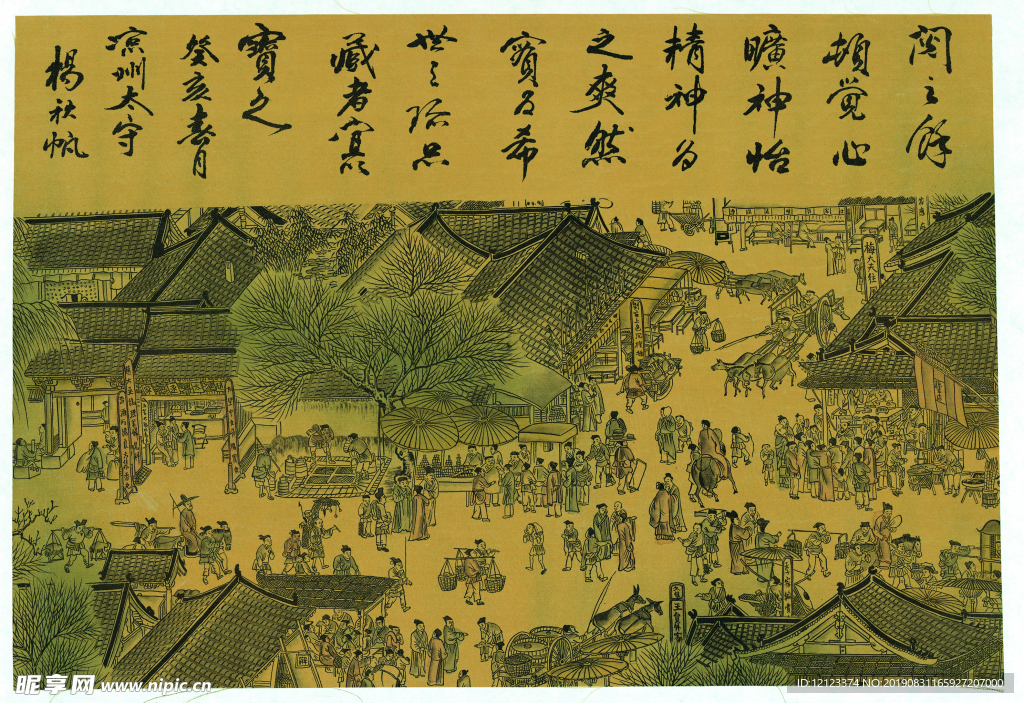 阅之馀
顿觉心
旷神怡
精神为
之爽然
实为希
世之珍品
藏者宜
宝之
癸亥春月
凉州太守
杨秋帆
昵享网 www.nipic.cn
ID:12123374 NO:20190831165927207000